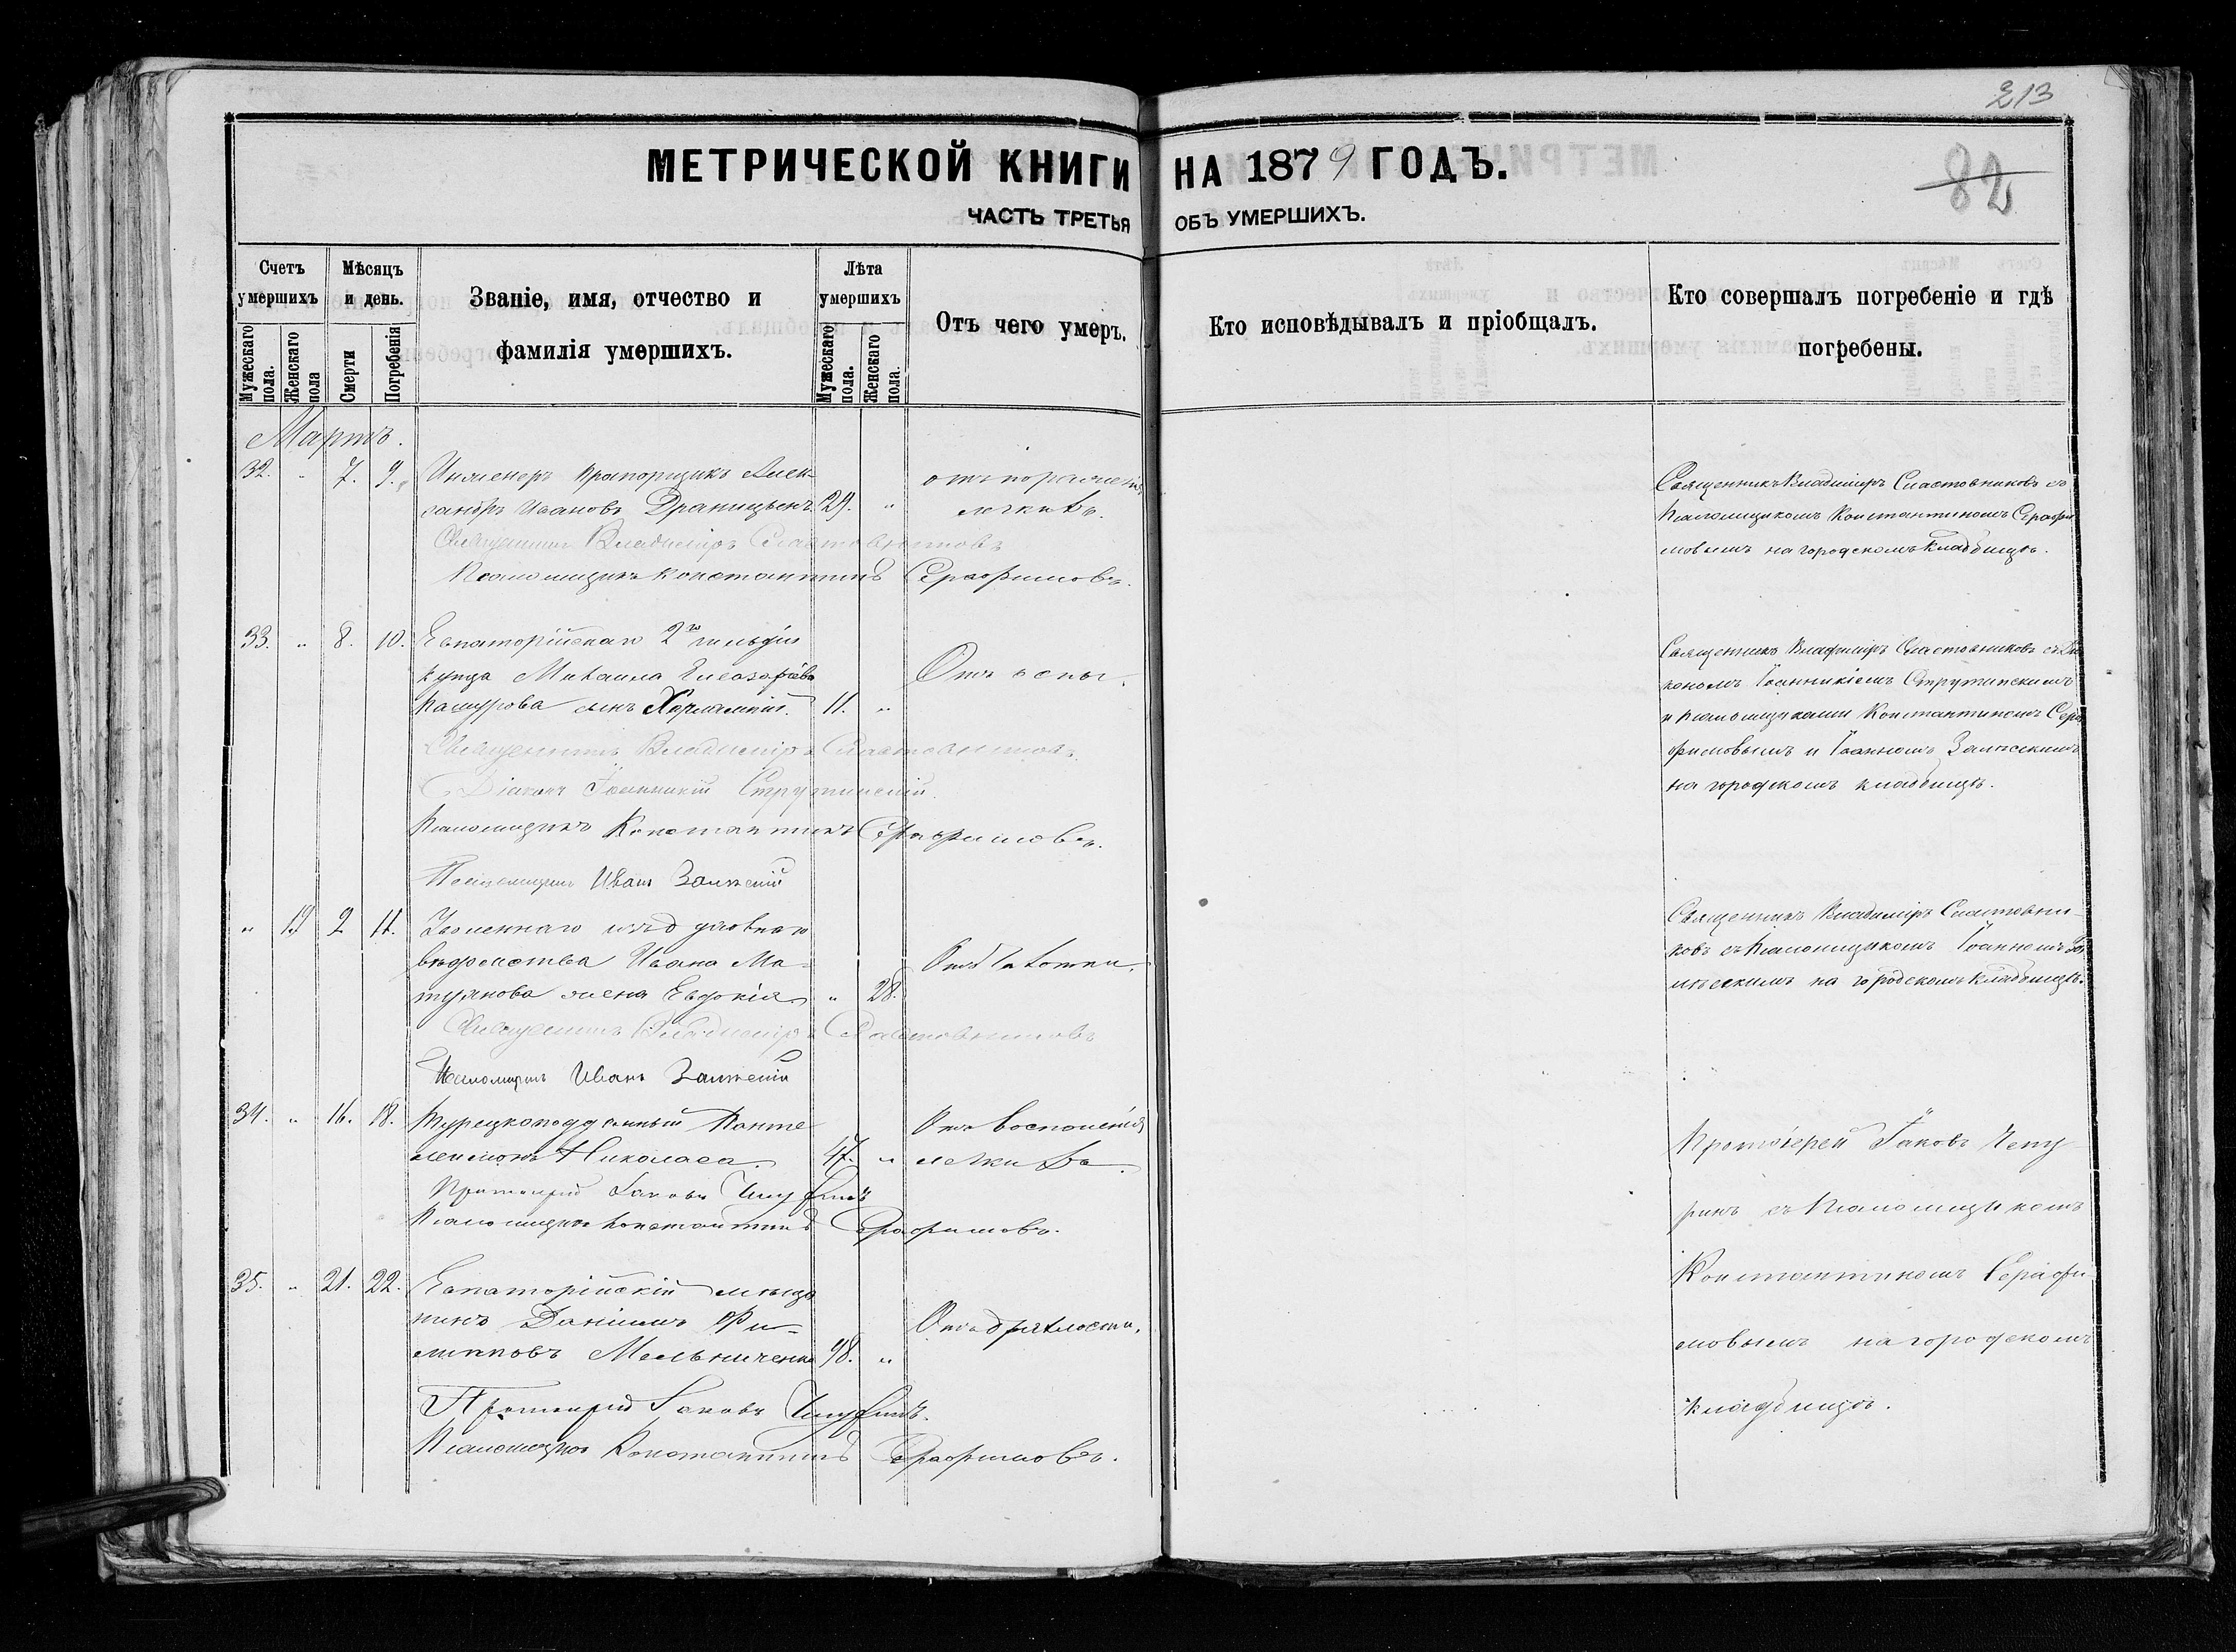 213
МЕТРИЧЕСКОЙ КНИГИ НА 1879 ГОДЪ.
82
ЧАСТЬ ТРЕТЬЯ ОБЪ УМЕРШИХЪ.
Счетъ умершихъ
Мѣсяцъ и день.
Званіе, имя, отчество и фамилія умершихъ.
Лѣта умершихъ
Отъ чего умеръ.
Кто исповѣдывалъ и пріобщалъ.
Кто совершалъ погребеніе и гдѣ погребены.
Мужескаго пола.
Женскаго пола
Смерти
Погребенія
Мужескаго пола.
Женскаго пола.
Мартъ.
32. " 7. 9. Инженеръ Прапорщикъ Алек-
сандръ Ивановъ 29. "
отъ пораженія
легкихъ.
Священникъ Владиміръ Сластовниковъ
Псаломщикъ Константинъ Серафимовъ.
Священникъ Владиміръ Сластовниковъ съ
Псаломщикомъ Константиномъ Серафи
мовымъ на городскомъ кладбищѣ.
33. " 8. 10. Евпаторійскаго 2й гильдіи
купца Михаила
сынъ Харлампій. 11. "
Отъ оспы.
Священникъ Владиміръ Сластовниковъ
Діаконъ Іоанникій Струтинскій
Псаломщикъ Константинъ Серафимовъ.
Псаломщикъ Иванъ
Священникъ Владиміръ Сластовниковъ съ Діа
кономъ Іоанникіемъ Струтинскимъ
и псаломщиками Константиномъ Сера
фимовымъ и Іоанномъ
на городскомъ кладбищѣ.
" 19 2 11. Уволеннаго изъ духовнаго
вѣдомства Ивана Ма-
жена Евдокія " 28.
Отъ чахотки.
Священникъ Владиміръ Сластовниковъ
Псаломщикъ Иванъ
Священникъ Владиміръ Сластовни-
ковъ съ псаломщикомъ Іоанномъ
на городскомъ кладбищѣ.
34. " 16. 18. Турецкоподданный Панте
леимонъ Николаса. 47. "
Отъ воспаленія
легкихъ.
Протоіерей Іаковъ Чепуринъ
Псаломщикъ Константинъ Серафимовъ.
35. " 21. 22. Евпаторійскій мѣща
нинъ Даніилъ Фи-
липповъ Мельниченко 98. "
Отъ дряхлости.
Протоіерей Іаковъ Чепуринъ.
Псаломщикъ Константинъ Серафимовъ.
Протоіерей Іаковъ Чепу
ринъ съ Псаломщикомъ
Константиномъ Серафи-
мовымъ на городскомъ
кладбищѣ.